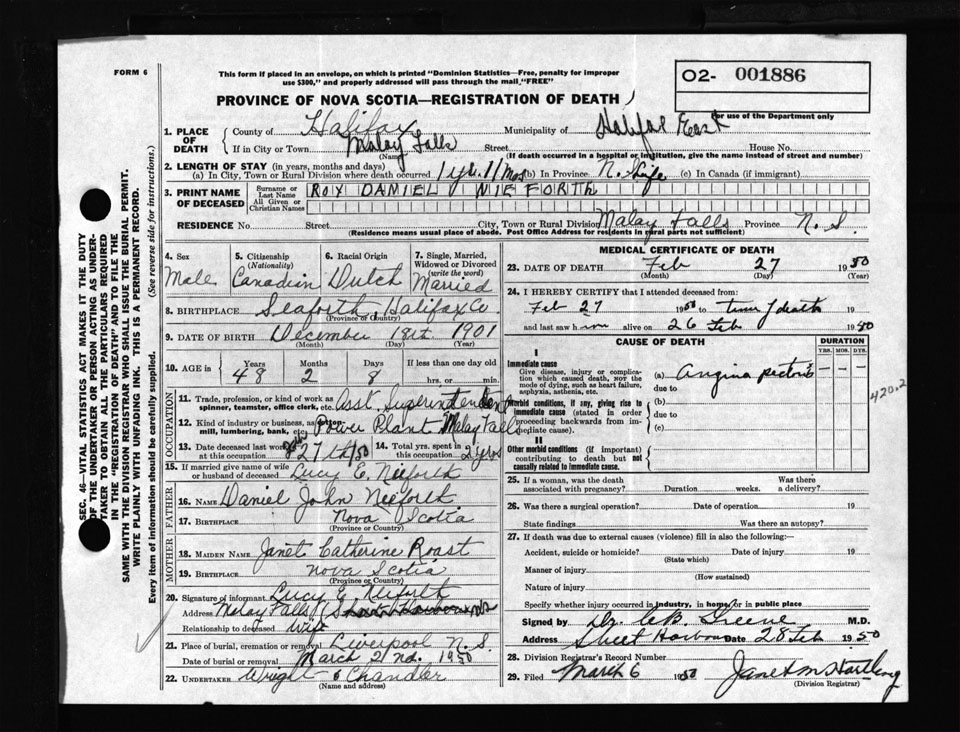 FORM 6
This form if placed in an envelope, on which is printed "Dominion Statistics—Free, penalty for improper
use $300," and properly addressed will pass through the mail "FREE"
O2- 001886
For use of the Department only
PROVINCE OF NOVA SCOTIA—REGISTRATION OF DEATH
1. PLACE OF DEATH
County of Halifax Municipality of Halifax East
If in City or Town Malay Falls Street House No.
(Name) (If death occurred in a hospital or institution, give the name instead of street and number)
2. LENGTH OF STAY (in years, months and days)
(a) In City, Town or Rural Division where death occurred 1 yr. 11 Mos (b) In Province N.S. Life (c) In Canada (if immigrant)
3. PRINT NAME OF DECEASED
Surname or Last Name ROY DANIEL NIEFORTH
All Given or Christian Names
RESIDENCE No. Street City, Town or Rural Division Malay Falls Province N.S.
(Residence means usual place of abode. Post Office Address for residents in rural parts not sufficient)
4. Sex Male
5. Citizenship (Nationality) Canadian
6. Racial Origin Dutch
7. Single, Married, Widowed or Divorced (write the word) Married
8. BIRTHPLACE Seaforth, Halifax Co
(Province or Country)
9. DATE OF BIRTH December 19th. 1901
(Month) (Day) (Year)
10. AGE in Years 48 Months 2 Days 8 If less than one day old hrs. or min.
OCCUPATION
11. Trade, profession or kind of work as spinner, teamster, office clerk, etc. Asst. Superintendent
12. Kind of industry or business, as cotton mill, lumbering, bank, etc. Power Plant Malay Falls
13. Date deceased last worked at this occupation 27th/50 14. Total yrs. spent in this occupation 2 yrs
15. If married give name of wife or husband of deceased Lucy E. Nieforth
FATHER
16. NAME Daniel John Nieforth
17. BIRTHPLACE Nova Scotia
(Province or Country)
MOTHER
18. MAIDEN NAME Janet Catherine Roast
19. BIRTHPLACE Nova Scotia
(Province or Country)
20. Signature of informant Lucy E. Nieforth
Address Malay Falls
Relationship to deceased Wife
21. Place of burial, cremation or removal Liverpool N.S.
Date of burial or removal March 2nd. 1950
22. UNDERTAKER Wright & Chandler
(Name and address)
MEDICAL CERTIFICATE OF DEATH
23. DATE OF DEATH Feb 27 1950
(Month) (Day) (Year)
24. I HEREBY CERTIFY that I attended deceased from:
Feb 27 1950 to time of death 19
and last saw him alive on 26 Feb 1950
CAUSE OF DEATH
DURATION
YRS. MOS. DYS.
I
Immediate cause
Give disease, injury or complication which caused death, NOT the mode of dying, such as heart failure, asphyxia, asthenia, etc.
(a) Angina pectoris
due to
420.2
Morbid conditions, if any, giving rise to immediate cause (stated in order proceeding backwards from immediate cause).
(b)
due to
(c)
II
Other morbid conditions (if important) contributing to death but not causally related to immediate cause.
25. If a woman, was the death associated with pregnancy? Duration weeks. Was there a delivery?
26. Was there a surgical operation? Date of operation 19
State findings Was there an autopsy?
27. If death was due to external causes (violence) fill in also the following:—
Accident, suicide or homicide? Date of injury 19
(State which)
Manner of injury
(How sustained)
Nature of injury
Specify whether injury occurred in industry, in home, or in public place
Signed by Dr. Greene M.D.
Address Sheet Harbour Date 28 Feb 1950
28. Division Registrar's Record Number
29. Filed March 6 1950 Janet M Hartling
(Division Registrar)
SEC. 46—VITAL STATISTICS ACT MAKES IT THE DUTY
OF THE UNDERTAKER OR PERSON ACTING AS UNDER-
TAKER TO OBTAIN ALL THE PARTICULARS REQUIRED
IN THE "REGISTRATION OF DEATH" AND TO FILE THE
SAME WITH THE DIVISION REGISTRAR WHO SHALL ISSUE THE BURIAL PERMIT.
WRITE PLAINLY WITH UNFADING INK. THIS IS A PERMANENT RECORD.
Every item of information should be carefully supplied. (See reverse side for instructions.)